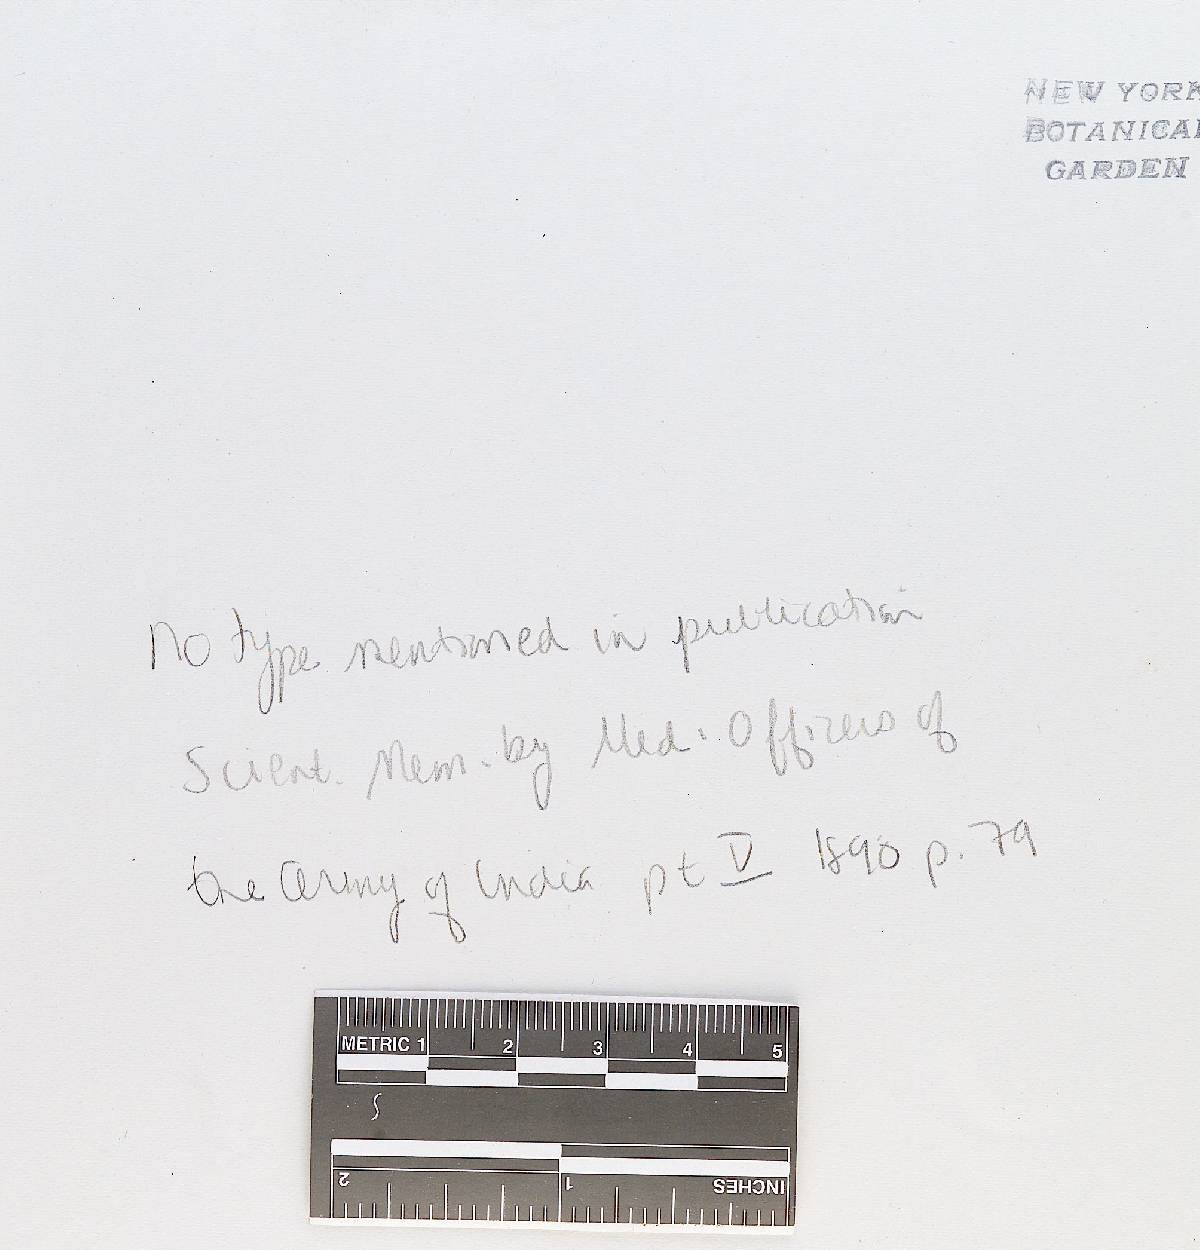 NEW YORK
BOTANICAL
GARDEN
No type mentioned in publication
Scient. Mem. by Med. Officers of
the Army of India pt V 1890 p. 79
METRIC 1 2 3 4 5
2 1 INCHES